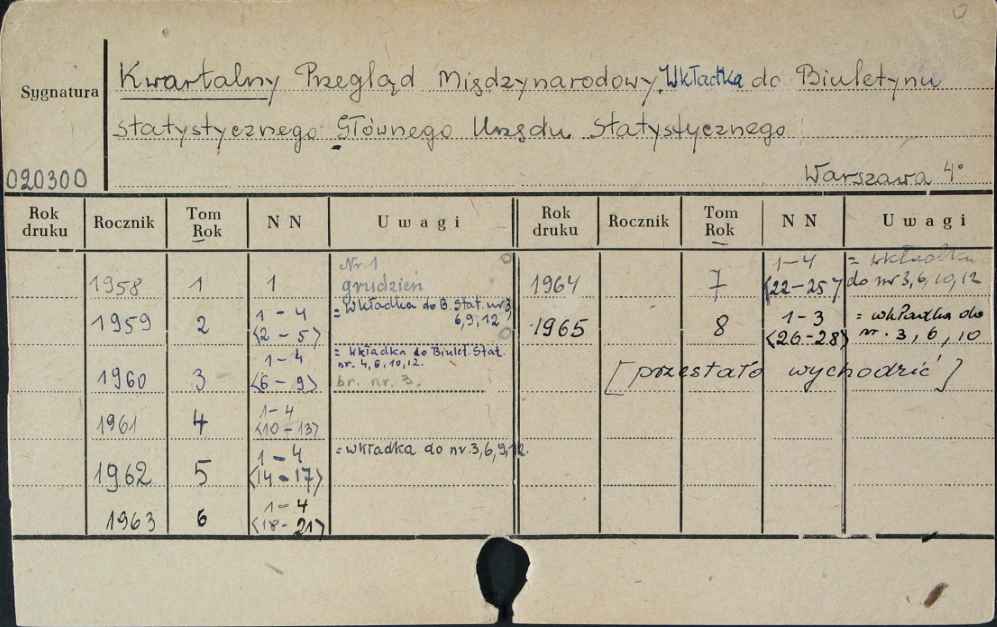 0
Kwartalny Przegląd Międzynarodowy. Wkładka do Biuletynu
Sygnatura
statystycznego Głównego Urzędu Statystycznego
020300
Warszawa 4°
Rok druku Rocznik Tom Rok N N Uwagi Rok druku Rocznik Tom Rok N N Uwagi
1958 1 1 Nr 1 grudzień
1959 2 1-4 <2-5> = Wkładka do B. Stat. nr 3, 6, 9, 12
1960 3 1-4 <6-9> = wkładka do Biulet. Stat. nr. 4, 6, 10, 12.
br. nr. 3.
1961 4 1-4 <10-13>
1962 5 1-4 <14-17> = wkładka do nr. 3, 6, 9, 12.
1963 6 1-4 <18-21>
1964 7 1-4 <22-25> = wkładka do nr 3, 6, 10, 12
1965 8 1-3 <26-28> = wkładka do nr. 3, 6, 10
[przestało wychodzić]